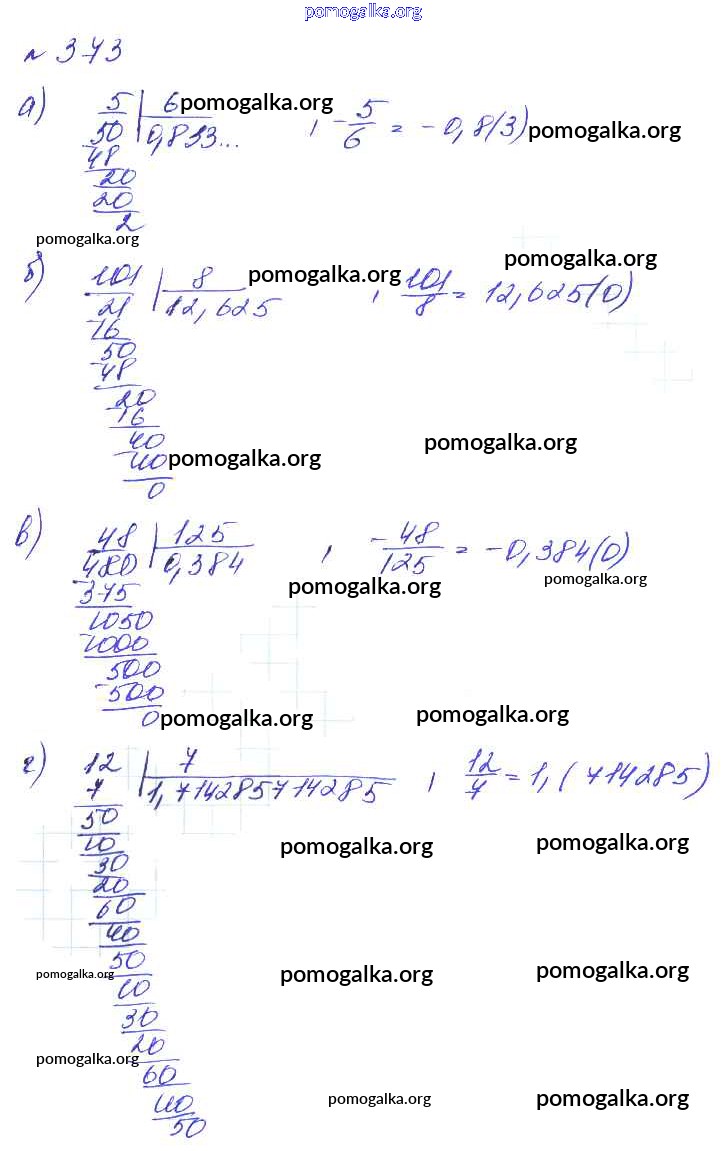 pomogalka.org
№ 373
а) 5 6 pomogalka.org
50 0,833... , -5/6 = -0,8(3) pomogalka.org
48
20
20
2
pomogalka.org
б) 101 8 pomogalka.org pomogalka.org
21 12,625 , 101/8 = 12,625(0)
16
50
48
20
16
40 pomogalka.org
40 pomogalka.org
0
в) 48 125 , -48/125 = -0,384(0)
480 0,384 pomogalka.org pomogalka.org
375
1050
1000
500
500
0 pomogalka.org pomogalka.org
г) 12 7 , 12/7 = 1,(714285)
7 1,714285714285
50
10 pomogalka.org pomogalka.org
30
20
60
40
50
pomogalka.org 10 pomogalka.org pomogalka.org
30
20
pomogalka.org
60
40 pomogalka.org pomogalka.org
50